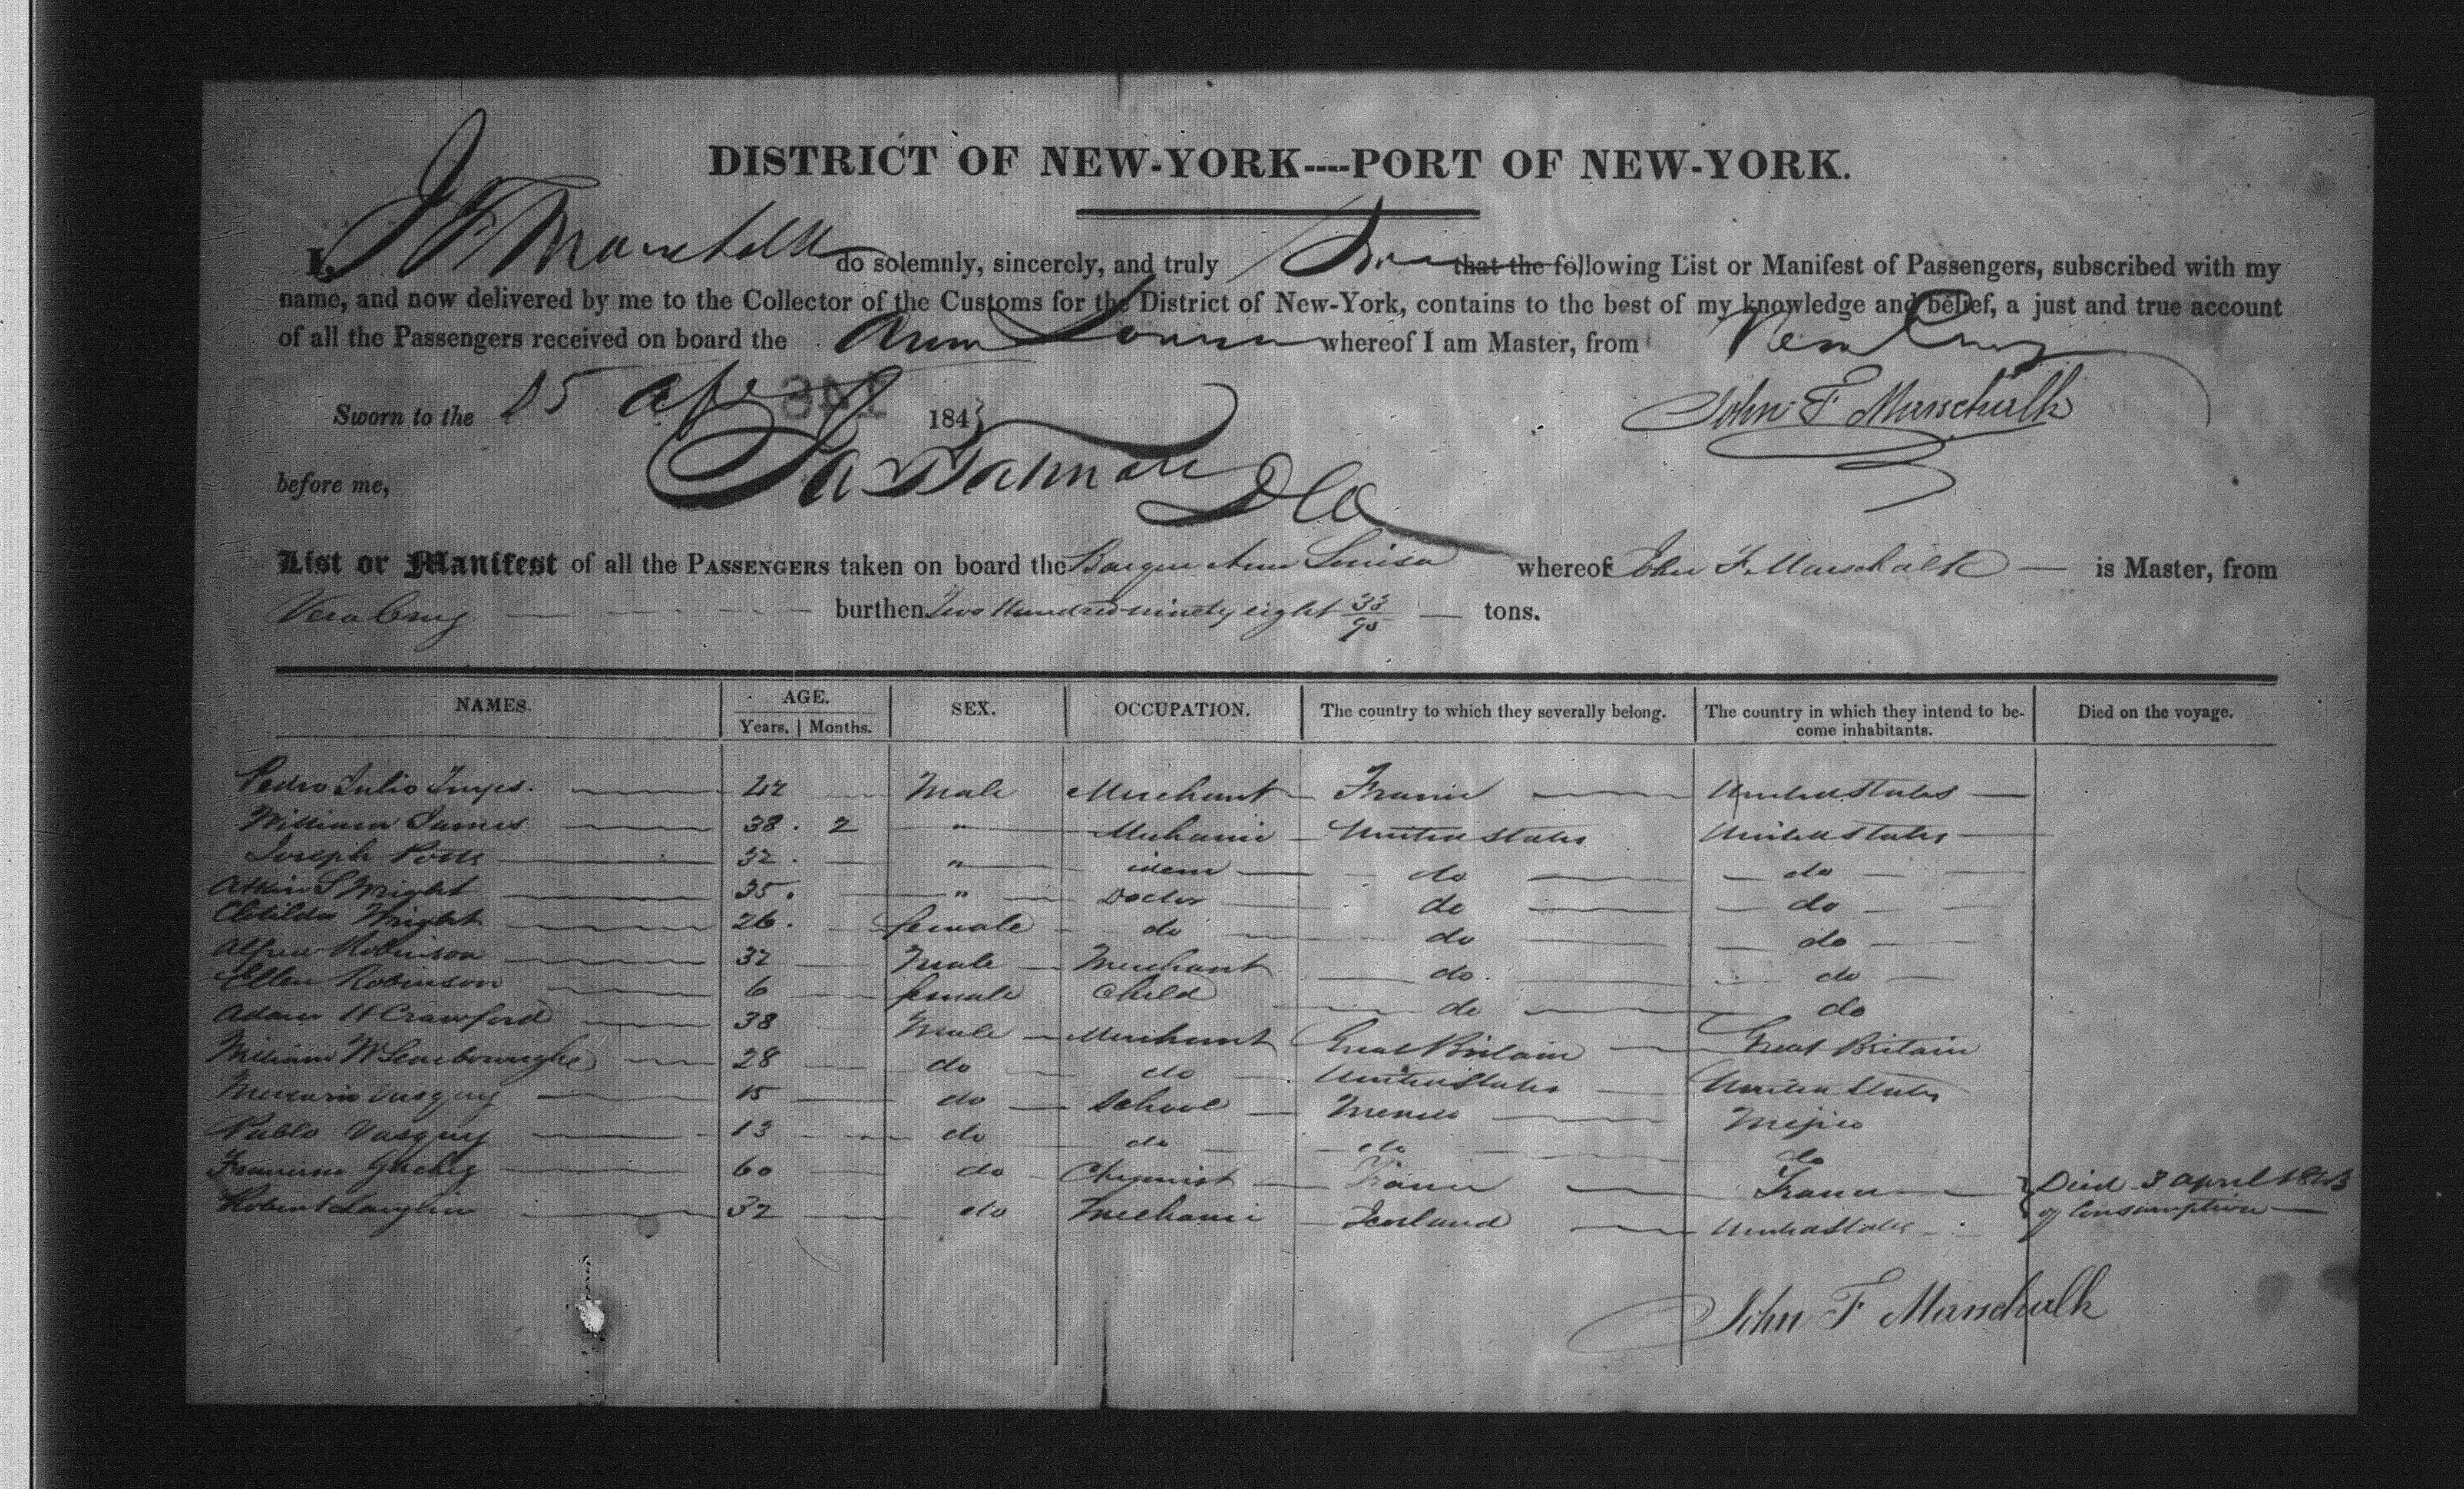 DISTRICT OF NEW-YORK----PORT OF NEW-YORK.
I, J F Marschalk do solemnly, sincerely, and truly that the following List or Manifest of Passengers, subscribed with my
name, and now delivered by me to the Collector of the Customs for the District of New-York, contains to the best of my knowledge and belief, a just and true account
of all the Passengers received on board the Ann Louisa whereof I am Master, from Vera Cruz
Sworn to the 15 Apl 1843 John F Marschalk
before me,
List or Manifest of all the PASSENGERS taken on board the Barque Ann Louisa whereof John F. Marschalk is Master, from
Vera Cruz burthen Two Hundred ninety eight 33/95 tons.
NAMES. AGE. SEX. OCCUPATION. The country to which they severally belong. The country in which they intend to be- Died on the voyage.
Years. Months. come inhabitants.
Pedro Julio 42 Male Merchant France United States
William James 38 . 2 " Mechanic United States United States
Joseph 32 . " idem do do
S Wright 35 . " Doctor do do
Clotilda Wright 26 . female do do do
Alfred Robinson 32 Male Merchant do do
Ellen Robinson 6 female Child do do
Adam H Crawford 38 Male Merchant Great Britain Great Britain
William W Scarboroughe 28 do do United States United States
15 do School Mexico Mejico
Pablo Vasquez 13 do do do do
60 do Chymist France France Died 3 April 1843
of Consumption
Robert 32 do Mechanic Scotland United States
John F Marschalk